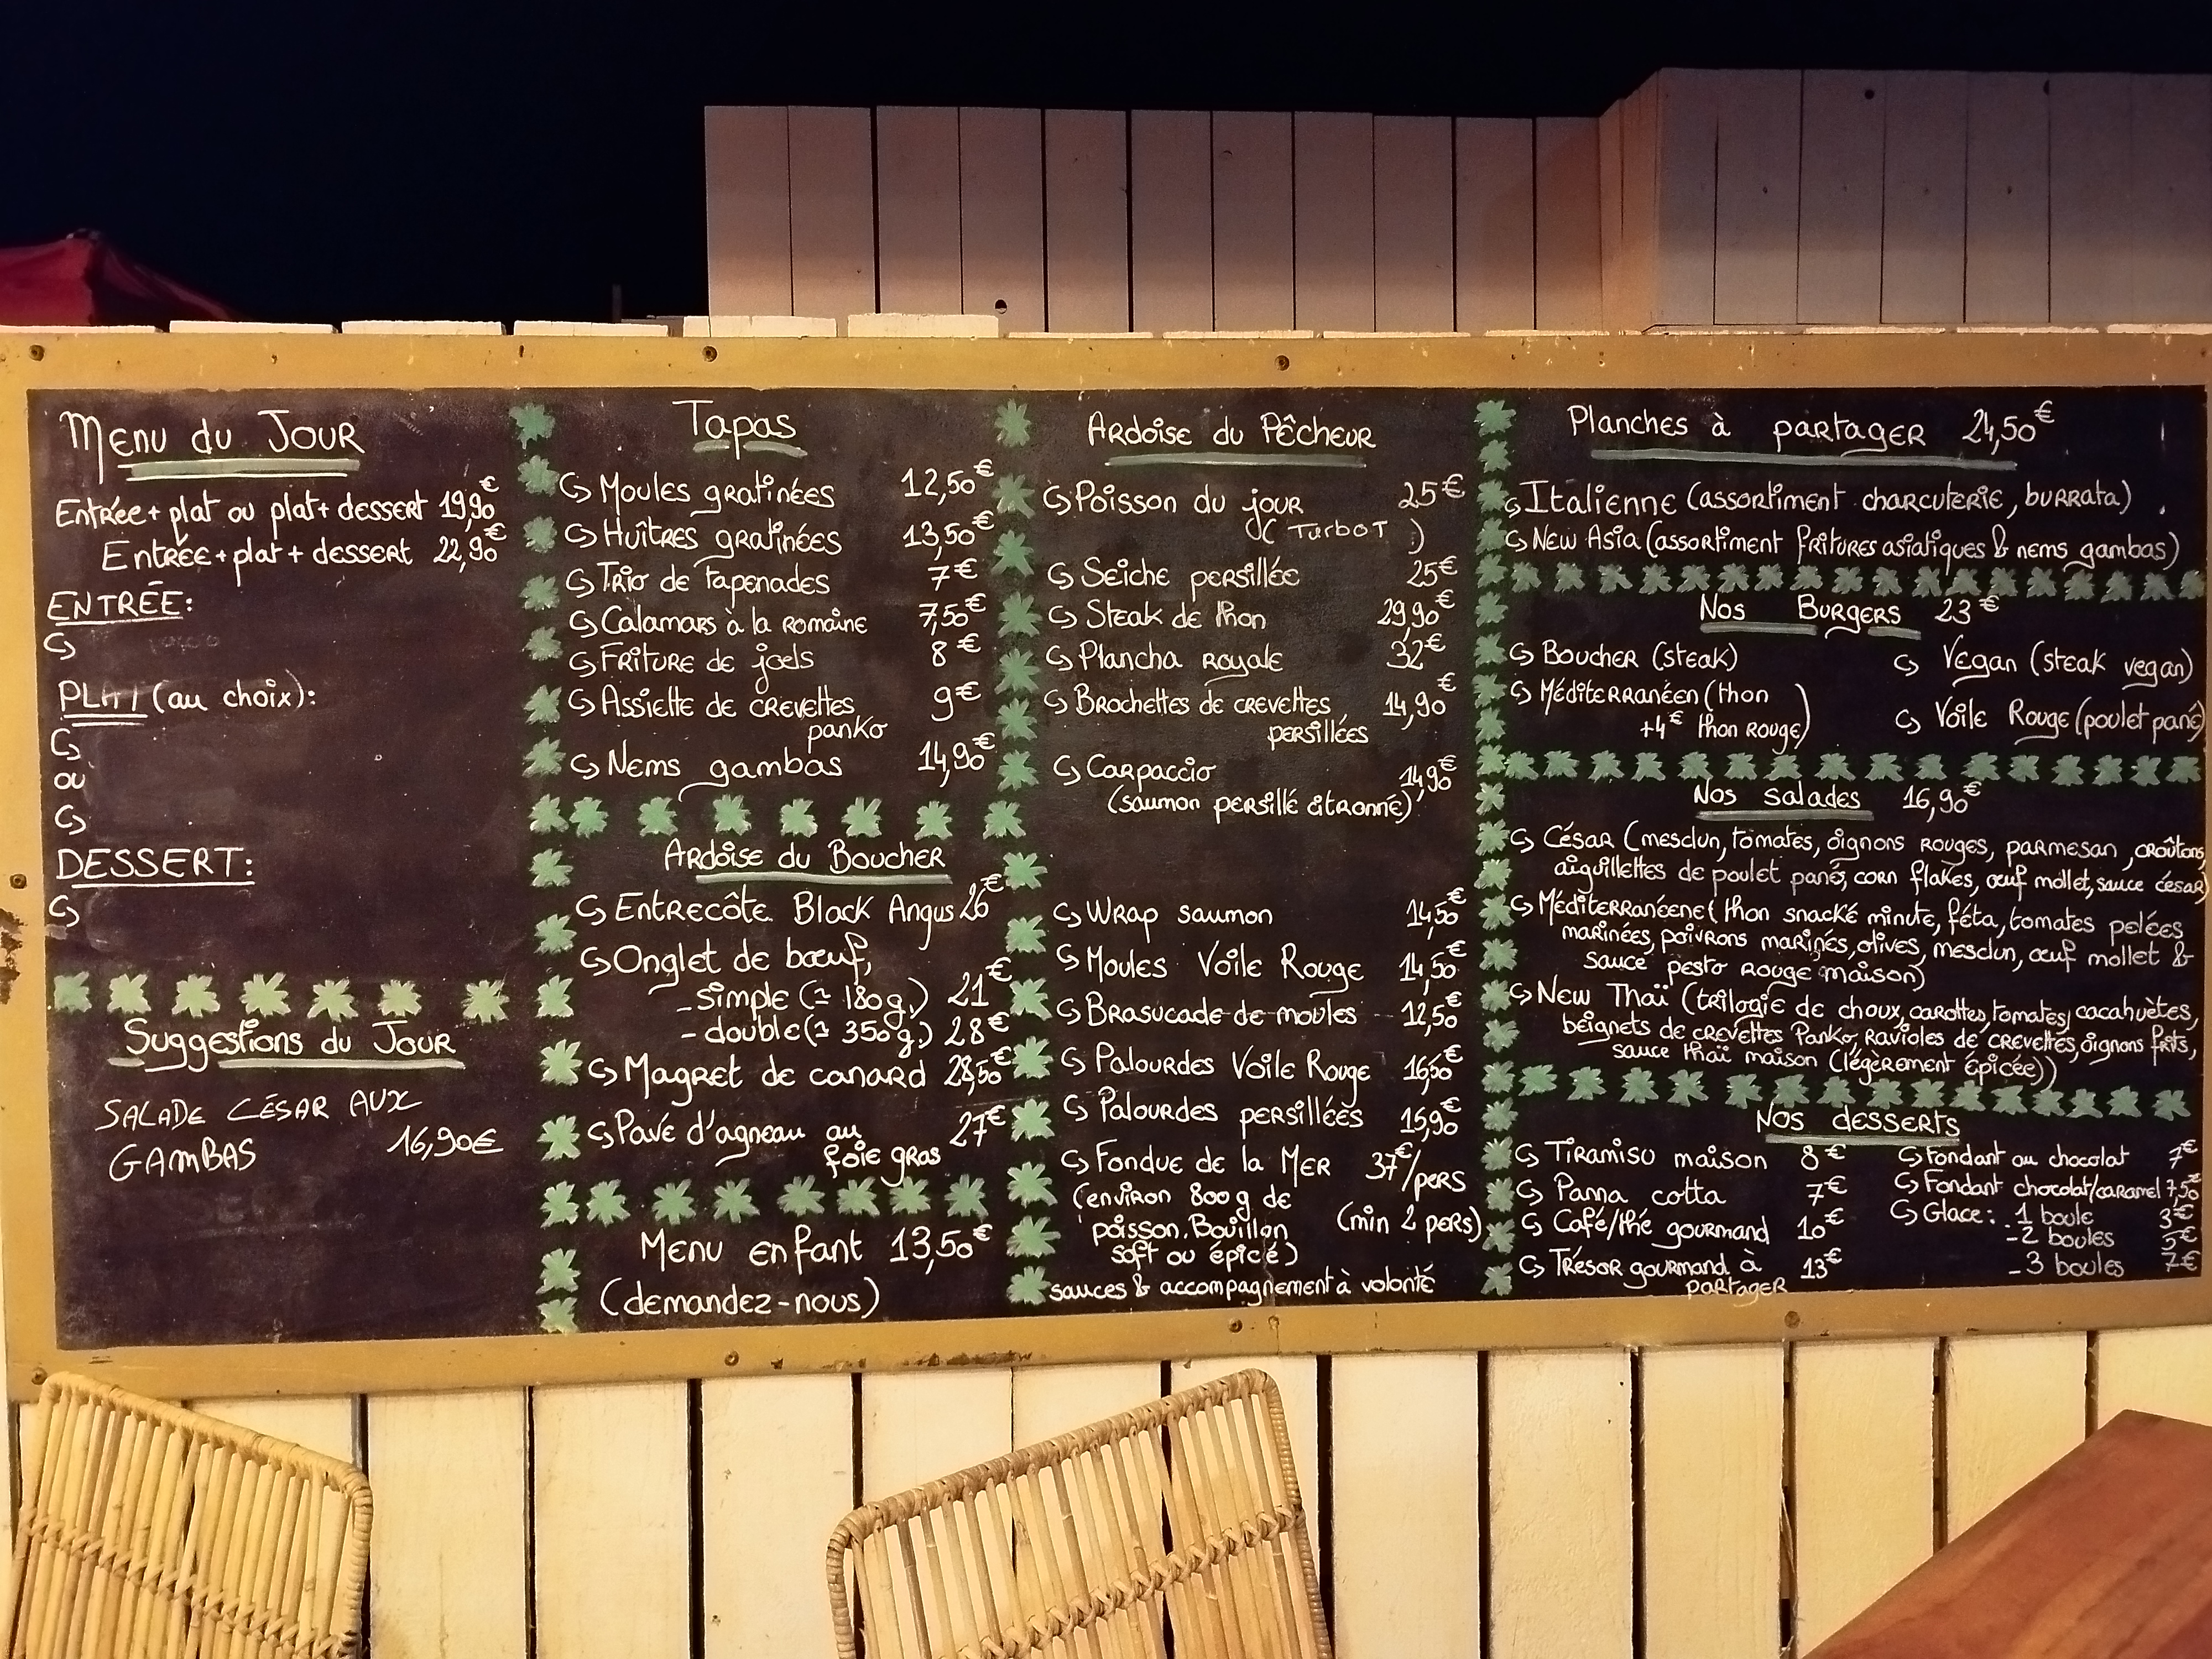 Menu du Jour
Entrée + plat ou plat + dessert 19,90€
Entrée + plat + dessert 22,90€
ENTRÉE:
PLAT (au choix):
ou
DESSERT:
Suggestions du Jour
SALADE CÉSAR AUX
GAMBAS 16,90€
Tapas
Moules gratinées 12,50€
Huîtres gratinées 13,50€
Trio de tapenades 7€
Calamars à la romaine 7,50€
Friture de joels 8€
Assiette de crevettes 9€
panko
Nems gambas 14,90€
Ardoise du Boucher
Entrecôte Black Angus 26€
Onglet de bœuf,
- simple (≃ 180g.) 21€
- double (≃ 350g.) 28€
Magret de canard 28,50€
Pavé d'agneau au 27€
foie gras
Menu enfant 13,50€
(demandez-nous)
Ardoise du Pêcheur
Poisson du jour 25€
(Turbot)
Seiche persillée 25€
Steak de thon 29,90€
Plancha royale 32€
Brochettes de crevettes 14,90€
persillées
Carpaccio 14,90€
(saumon persillé citronné)
Wrap saumon 14,50€
Moules Voile Rouge 14,50€
Brasucade de moules 12,50€
Palourdes Voile Rouge 16,50€
Palourdes persillées 15,90€
Fondue de la Mer 37€/pers
(environ 800g de
poisson. Bouillon (min 2 pers)
soft ou épicé)
sauces & accompagnement à volonté
Planches à partager 24,50€
Italienne (assortiment charcuterie, burrata)
New Asia (assortiment fritures asiatiques & nems gambas)
Nos Burgers 23€
Boucher (steak) Vegan (steak vegan)
Méditerranéen (thon
+4€ thon rouge) Voile Rouge (poulet pané)
Nos salades 16,90€
César (mesclun, tomates, oignons rouges, parmesan, croûtons,
aiguillettes de poulet pané, corn flakes, œuf mollet, sauce césar)
Méditerranéene (thon snacké minute, féta, tomates pelées
marinées, poivrons marinés, olives, mesclun, œuf mollet &
sauce pesto rouge maison)
New Thaï (trilogie de choux, carottes, tomates, cacahuètes,
beignets de crevettes Panko, Ravioles de crevettes, oignons frits,
sauce thaï maison (légèrement épicée))
Nos desserts
Tiramisu maison 8€ Fondant au chocolat 7€
Panna cotta 7€ Fondant chocolat/caramel 7,50€
Café/thé gourmand 10€ Glace: - 1 boule 3€
- 2 boules 5€
Trésor gourmand à 13€ - 3 boules 7€
partager